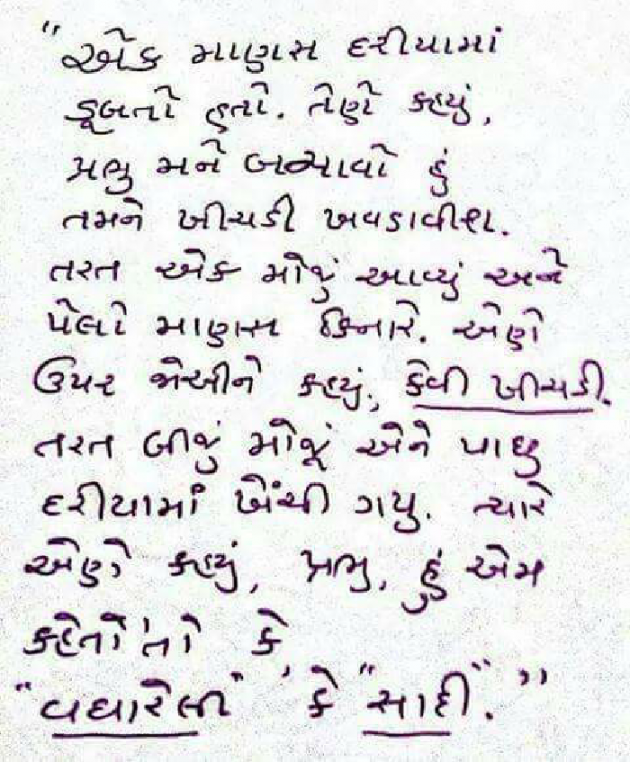 "એક માણસ દરીયામાં
ડૂબતો હતો. તેણે કહયું,
પ્રભુ મને બચાવો હું
તમને ખીચડી ખવડાવીશ.
તરત એક મોજું આવ્યું અને
પેલો માણસ કિનારે. એણે
ઉપર જોઈને કહયું, કેવી ખીચડી.
તરત બીજું મોજૂં એને પાછુ
દરીયામાં ખેંચી ગયુ. ત્યારે
એણે કહયું, પ્રભુ, હું એમ
કહેતો'તો કે,
"વઘારેલી" કે "સાદી"."